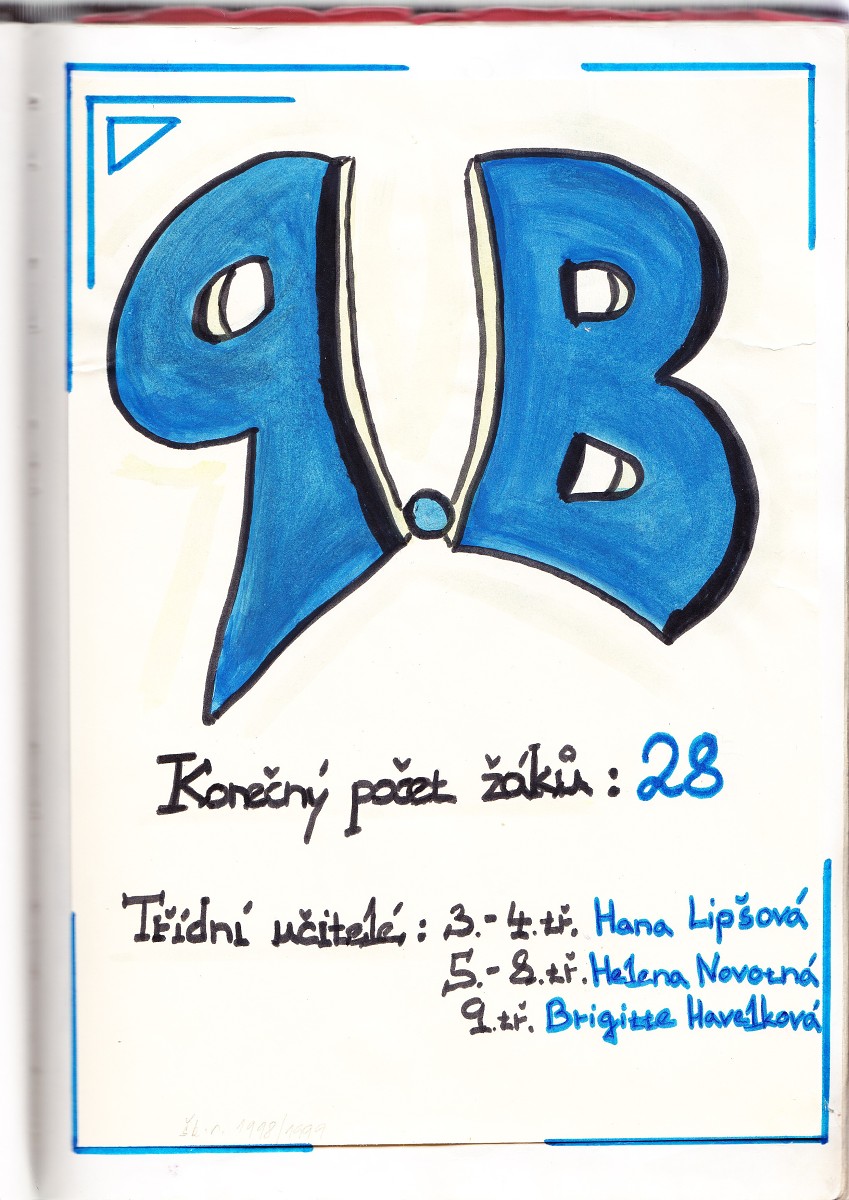 9.B
Konečný počet žáků : 28
Třídní učitelé : 3.- 4.tř. Hana Lipšová
5.- 8.tř. Helena Novotná
9.tř. Brigitte Havelková
šk.r. 1998/1999